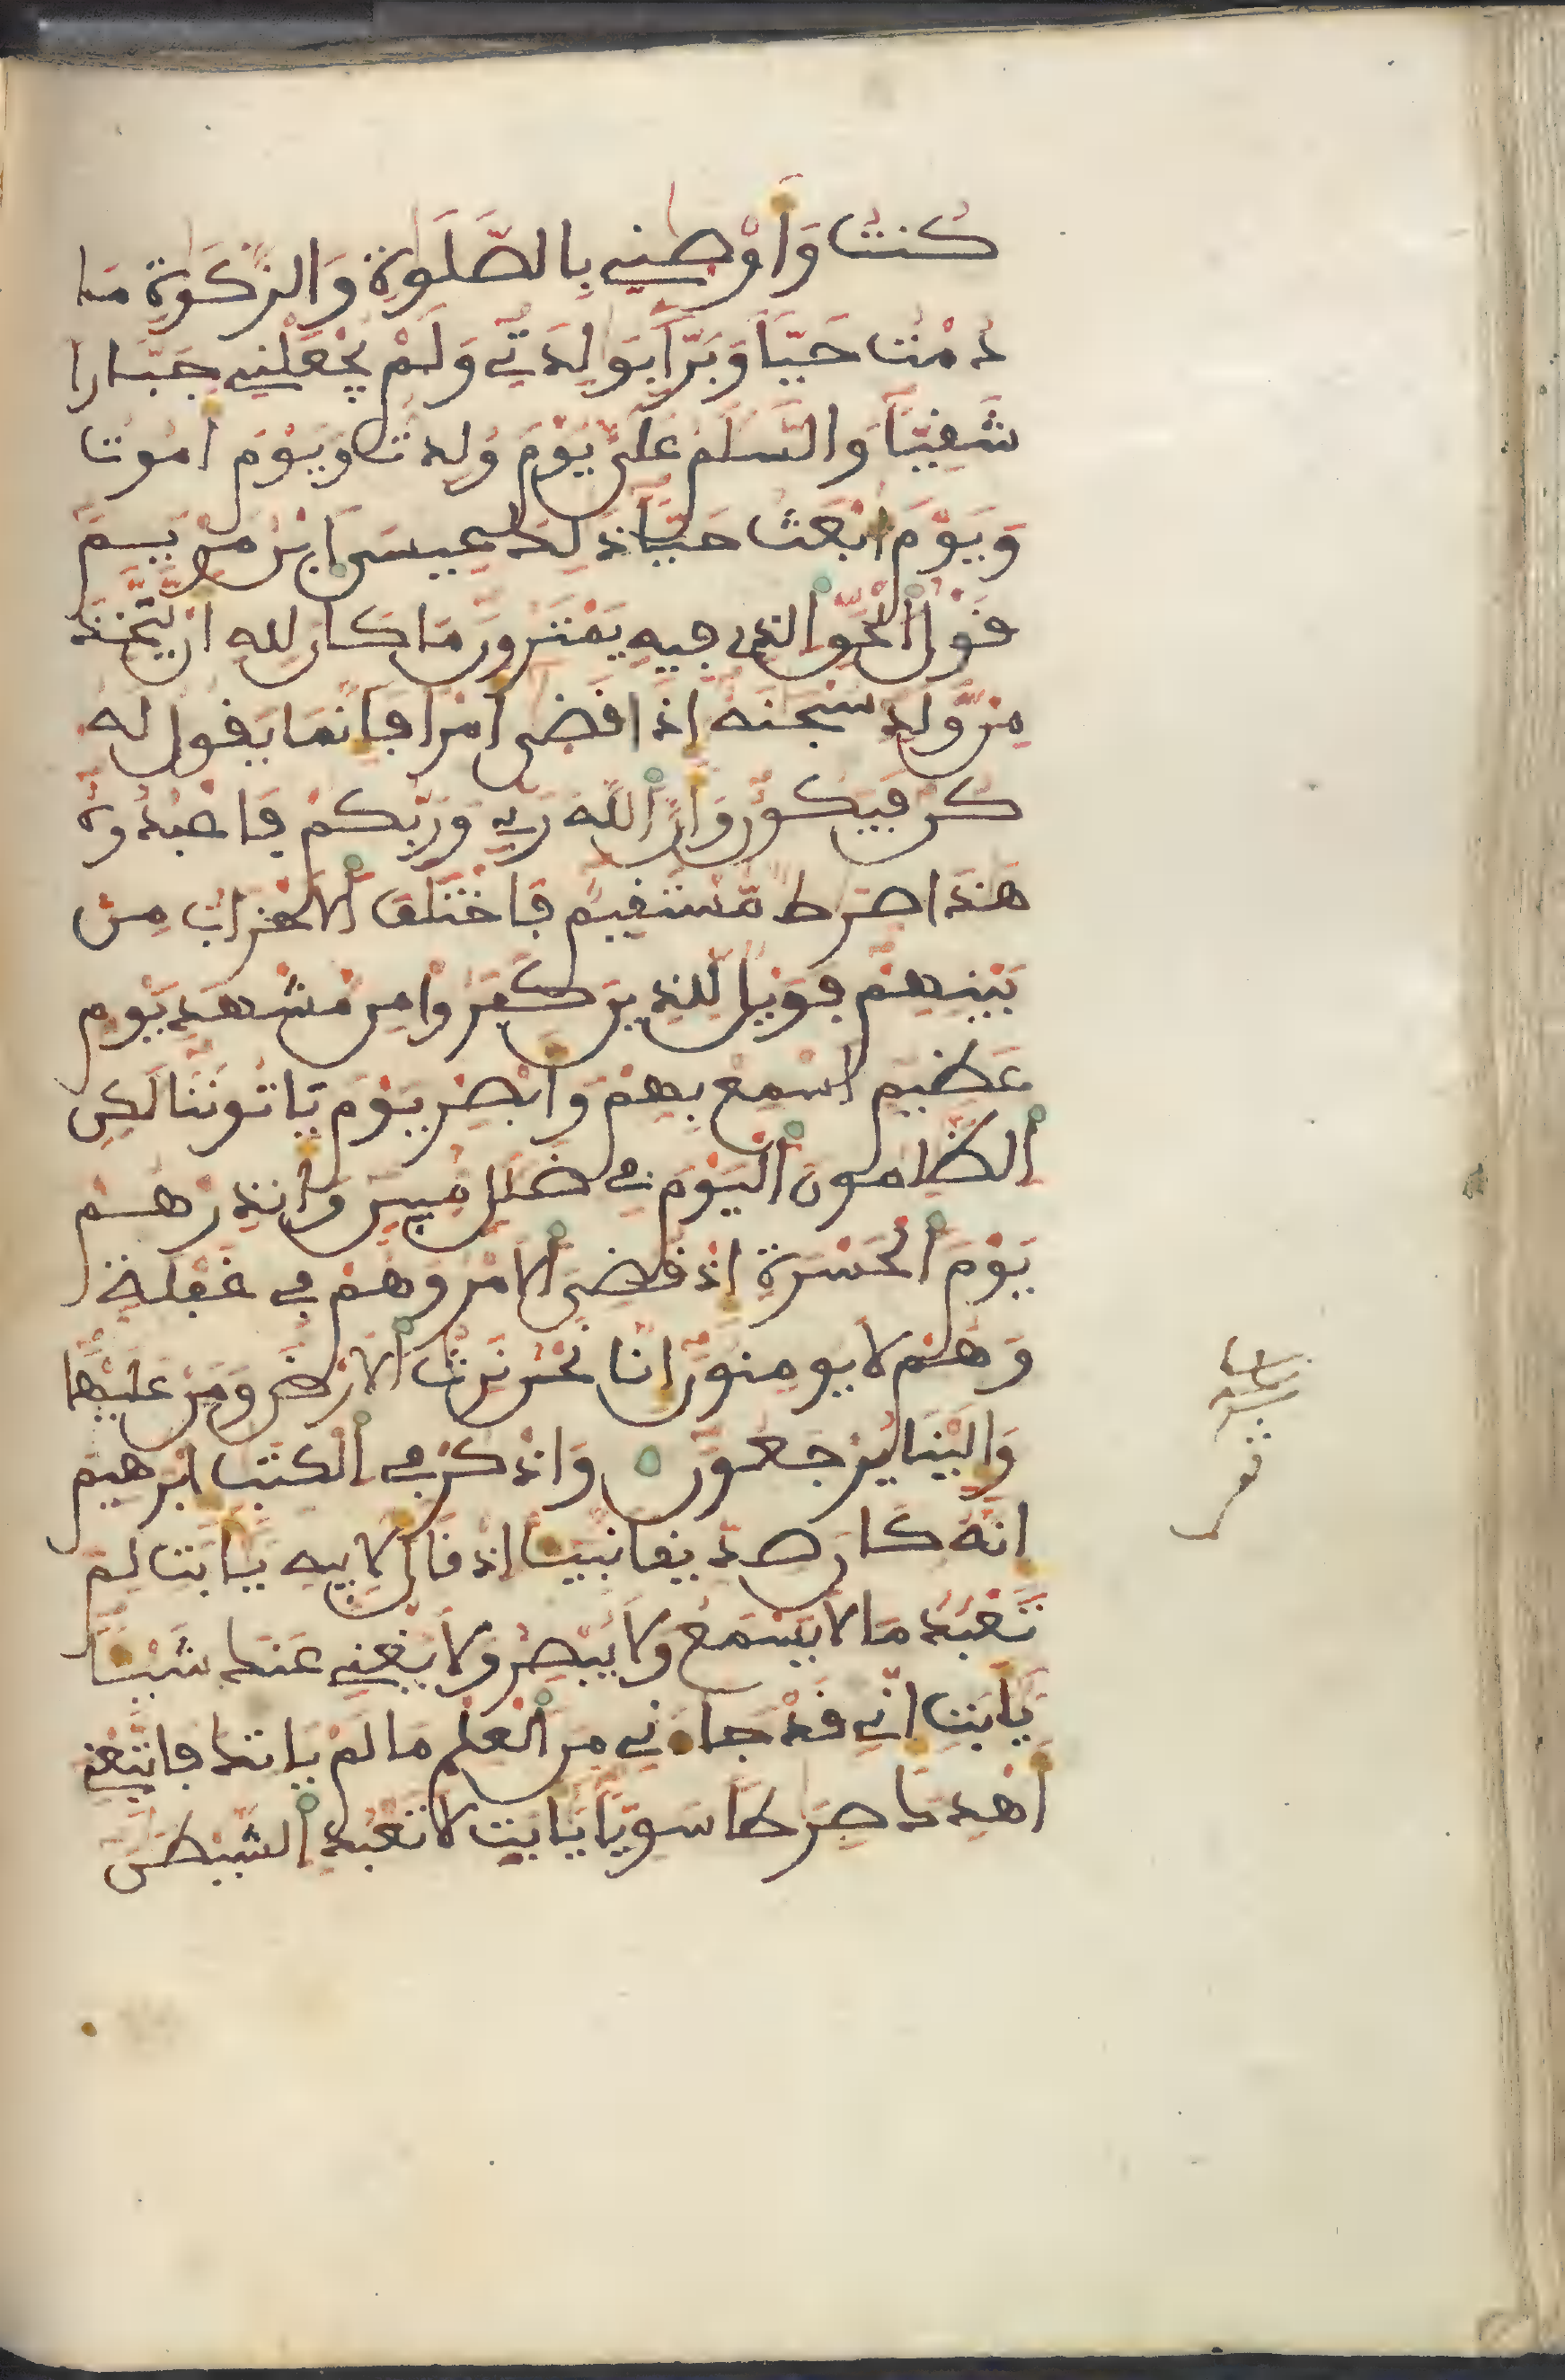 كُنتُ وَأَوْصٰنِے بِالصَّلَوٰةِ وَالزَّكَوٰةِ مَا
دُمْتُ حَيّاً وَبَرّاً بِوَٰلِدَتِے وَلَمْ يَجْعَلْنِے جَبَّارا
شَفِيّاً وَالسَّلَٰمُ عَلَىَّ يَوْمَ وُلِدتُّ وَيَوْمَ أَمُوتُ
وَيَوْمَ أُبْعَثُ حَيّاً ذَٰلِكَ عِيسَى اَبْنُ مَرْيَمَ
فَوْلُ اُلْحَقِّ اِلذِے فِيهِ يَمْتَرُونَ مَا كَانَ لِلهِ أَنْ يَّتَّخِذَ
مِنْ وَّلَدٖ سُبْحَٰنَهُ إِذَا قَضٰى أَمْرا فَإِنَّمَا يَقُولُ لَهُ
كُن فَيَكُونُ وَأَنَّ اَللَّهَ رَبِّے وَرَبُّكُمْ فَاعْبُدُوهُ
هَٰذَا صِرَٰطٌ مُّسْتَقِيمٌ فَاخْتَلَفَ اَلَاحْزَابُ مِنۢ
بَيْنِهِمْ فَوَيْلٌ لِّلذِينَ كَفَرُوا مِن مَّشْهَدِ يَوْمٍ
عَظِيمٍ أَسْمِعْ بِهِمْ وَأَبْصِرْ يَوْمَ يَاتُونَنَا لَٰكِنِ
اِلظَّٰلِمُونَ اَلْيَوْمَ فِے ضَلَٰلٖ مُّبِينٖ وَأَنذِرْهُمْ
يَوْمَ اَلْحَسْرَةِ إِذْ قُضِىَ اَلَامْرُ وَهُمْ فِے غَفْلَةٖ
وَهُمْ لَا يُومِنُونَ إِنَّا نَحْنُ نَرِثُ اُلَارْضَ وَمَنْ عَلَيْهَا
وَإِلَيْنَا يُرْجَعُونَ وَاذْكُرْ فِے اِلْكِتَٰبِ إِبْرَٰهِيمَ
إِنَّهُ كَانَ صِدِّيقا نَّبِيّـا إِذْ قَالَ لِأَبِيهِ يَٰأَبَتِ لِمَ
تَعْبُدُ مَا لَا يَسْمَعُ وَلَا يُبْصِرُ وَلَا يُغْنِے عَنكَ شَيْـٔاً
يَٰأَبَتِ إِنِّے قَدْ جَاءَنِے مِنَ اَلْعِلْمِ مَا لَمْ يَاتِكَ فَاتَّبِعْنِے
أَهْدِكَ صِرَٰطاً سَوِيّاً يَٰأَبَتِ لَا تَعْبُدِ اِلشَّيْطَٰنَ